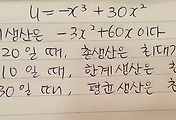 u = -x³ + 30x²
생산은 -3x²+60x이다
20일 때, 총생산은 최대가
10일 때, 한계생산은 최
30일 때, 평균생산은